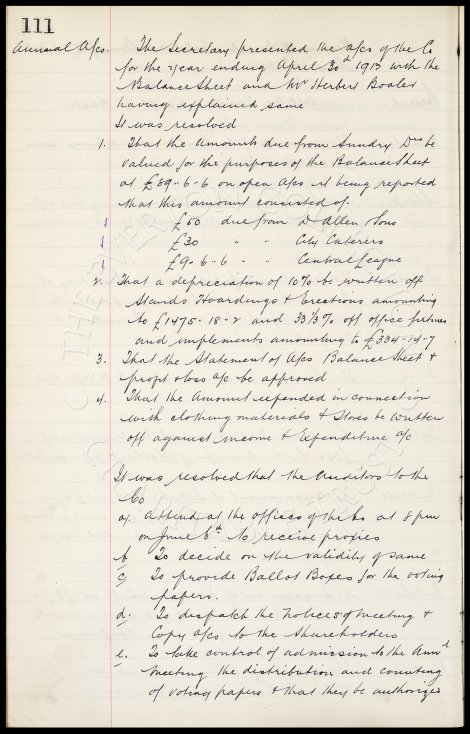 111
Annual A/cs. The Secretary presented the a/cs of the Co
for the year ending April 30th 1913 with the
Balance Sheet and Mr Herbert Boaler
having explained same
It was resolved
1. That the amounts due from Sundry Drs be
valued for the purposes of the Balance Sheet
at £89-6-6 on open a/cs it being reported
that this amount consisted of
£50 due from D Allen Sons
£30 " " City Caterers
£9-6-6 " " Central League
2. That a depreciation of 10% be written off
Stands Hoardings & Erections amounting
to £1475-18-2 and 33 1/3% off office fixtures
and implements amounting to £334-14-7
3. That the Statement of A/cs Balance Sheet &
profit & loss a/c be approved
4. That the amount expended in connection
with clothing materials & Stores be written
off against income & Expenditure a/c
It was resolved that the Auditors to the
Co
a). Attend at the offices of the Co at 8 pm
on June 6th to receive proxies
b To decide on the validity of same
c) To provide Ballot Boxes for the voting
papers.
d. To dispatch the Notices of meeting &
Copy a/cs to the Shareholders
e. To take control of admission to the Annl
meeting the distribution and counting
of voting papers & that they be authorized